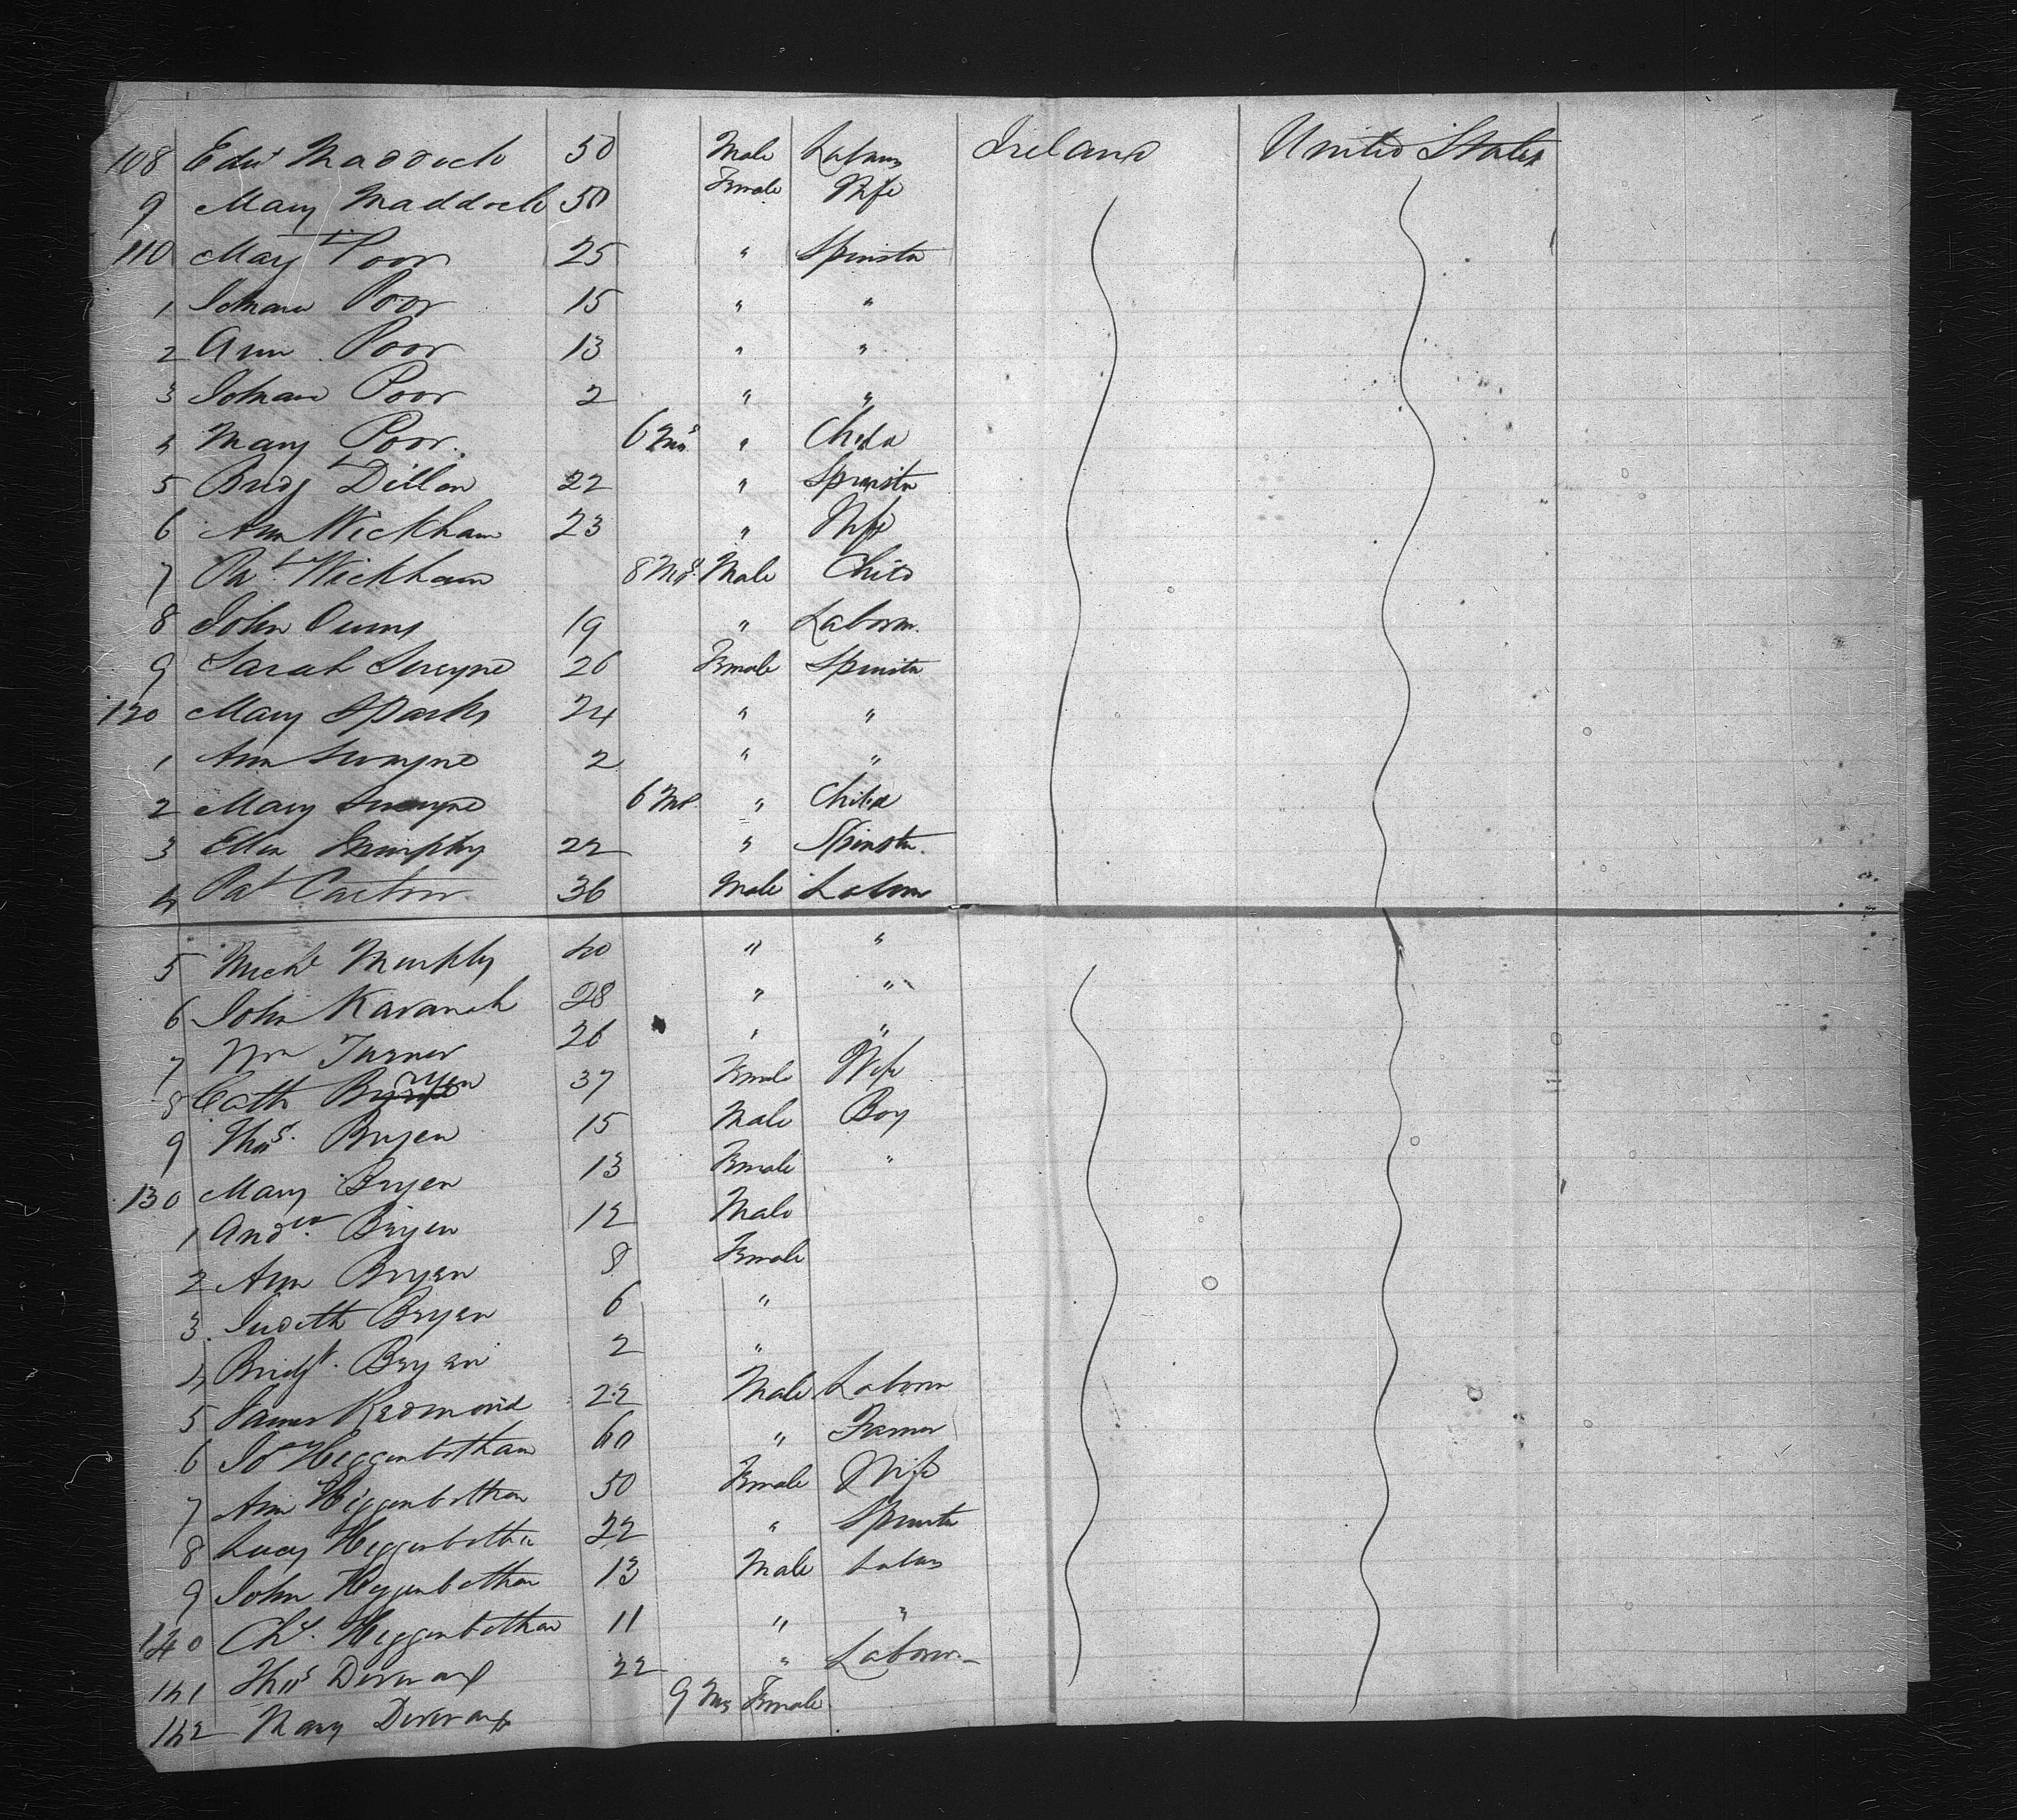 108 Edwd Maddock 50 Male Laborer Ireland United States
9 Mary Maddock 50 Female Wife
110 Mary Poor 25 " Spinster
1 Johana Poor 15 " "
2 Ann Poor 13 " "
3 Johana Poor 2 " "
4 Mary Poor. 6 Mos " Child
5 Bridgt Dillon 22 " Spinster
6 Ann Wickham 23 " Wife
7 Pat. Wickham 8 Mos. Male Child
8 John Owens 19 " Laborer.
9 Sarah Swayne 26 Female Spinster
120 Mary Sparks 24 " "
1 Ann Swayne 2 " "
2 Mary Swayne 6 Mos. " Child
3 Ellen Murphy 22 " Spinster.
4 Pat Carton 36 Male Laborer
5 Michl Murphy 40 " "
6 John Kavanah 28 " "
7 Wm Turner 26 " "
8 Cath Bryen 37 Female Wife
9 Thos. Bryen 15 Male Boy
130 Mary Bryen 13 Female "
1 Andw. Bryen 12 Male
2 Ann Bryen 8 Female
3. Judith Bryen 6 "
4 Bridgt. Bryen 2 "
5 James Redmond 22 Male Laborer
6 Jo Higgenbotham 60 " Farmer
7 Ann Higgenbotham 50 Female Wife
8 Lucy Higgenbotham 22 " Spinster
9 John Higgenbotham 13 Male Laborer
140 Chs. Higgenbotham 11 " "
141 Thos Deveraux 22 " Laborer
142 Mary Deveraux 9 Mos Female